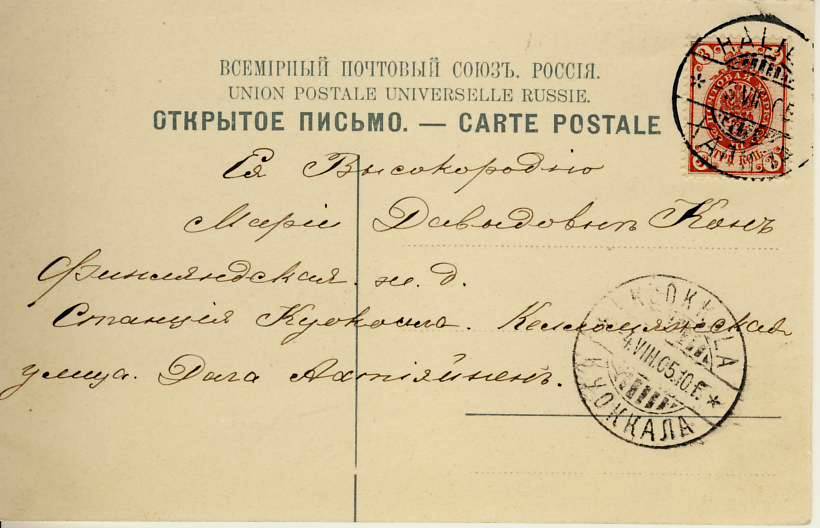 ВСЕМІРНЫЙ ПОЧТОВЫЙ СОЮЗЪ. РОССІЯ.
UNION POSTALE UNIVERSELLE RUSSIE.
ОТКРЫТОЕ ПИСЬМО. — CARTE POSTALE
Ея Высокородію
Маріи Давыдовнѣ Конъ
Финляндская ж. д.
Станція Куоккала. Келломякская
улица. Дача Ахтіяйненъ.
KUOKKALA
4.VIII.05.10.F.
КУОККАЛА